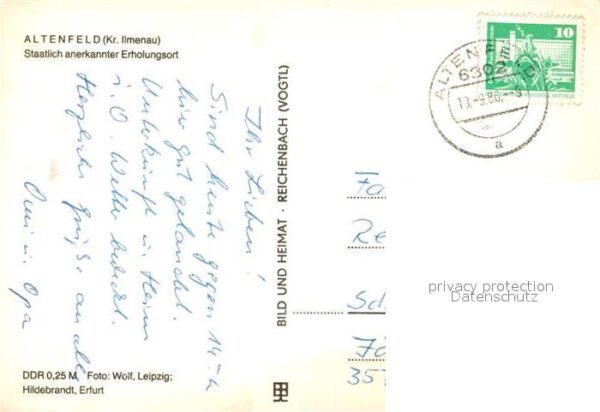 ALTENFELD (Kr. Ilmenau)
Staatlich anerkannter Erholungsort
Ihr Lieben!
Sind heute gegen 14⁰⁰ h
hier gut gelandet.
Unterkunft im Heim
i. O. Wetter bedeckt.
Herzliche Grüße an alle
Omi u. Opa
DDR 0,25 M Foto: Wolf, Leipzig;
Hildebrandt, Erfurt
BILD UND HEIMAT · REICHENBACH (VOGTL)
10
ALTENFELD
630
a
Fa
Re
Sc
35
privacy protection
Datenschutz